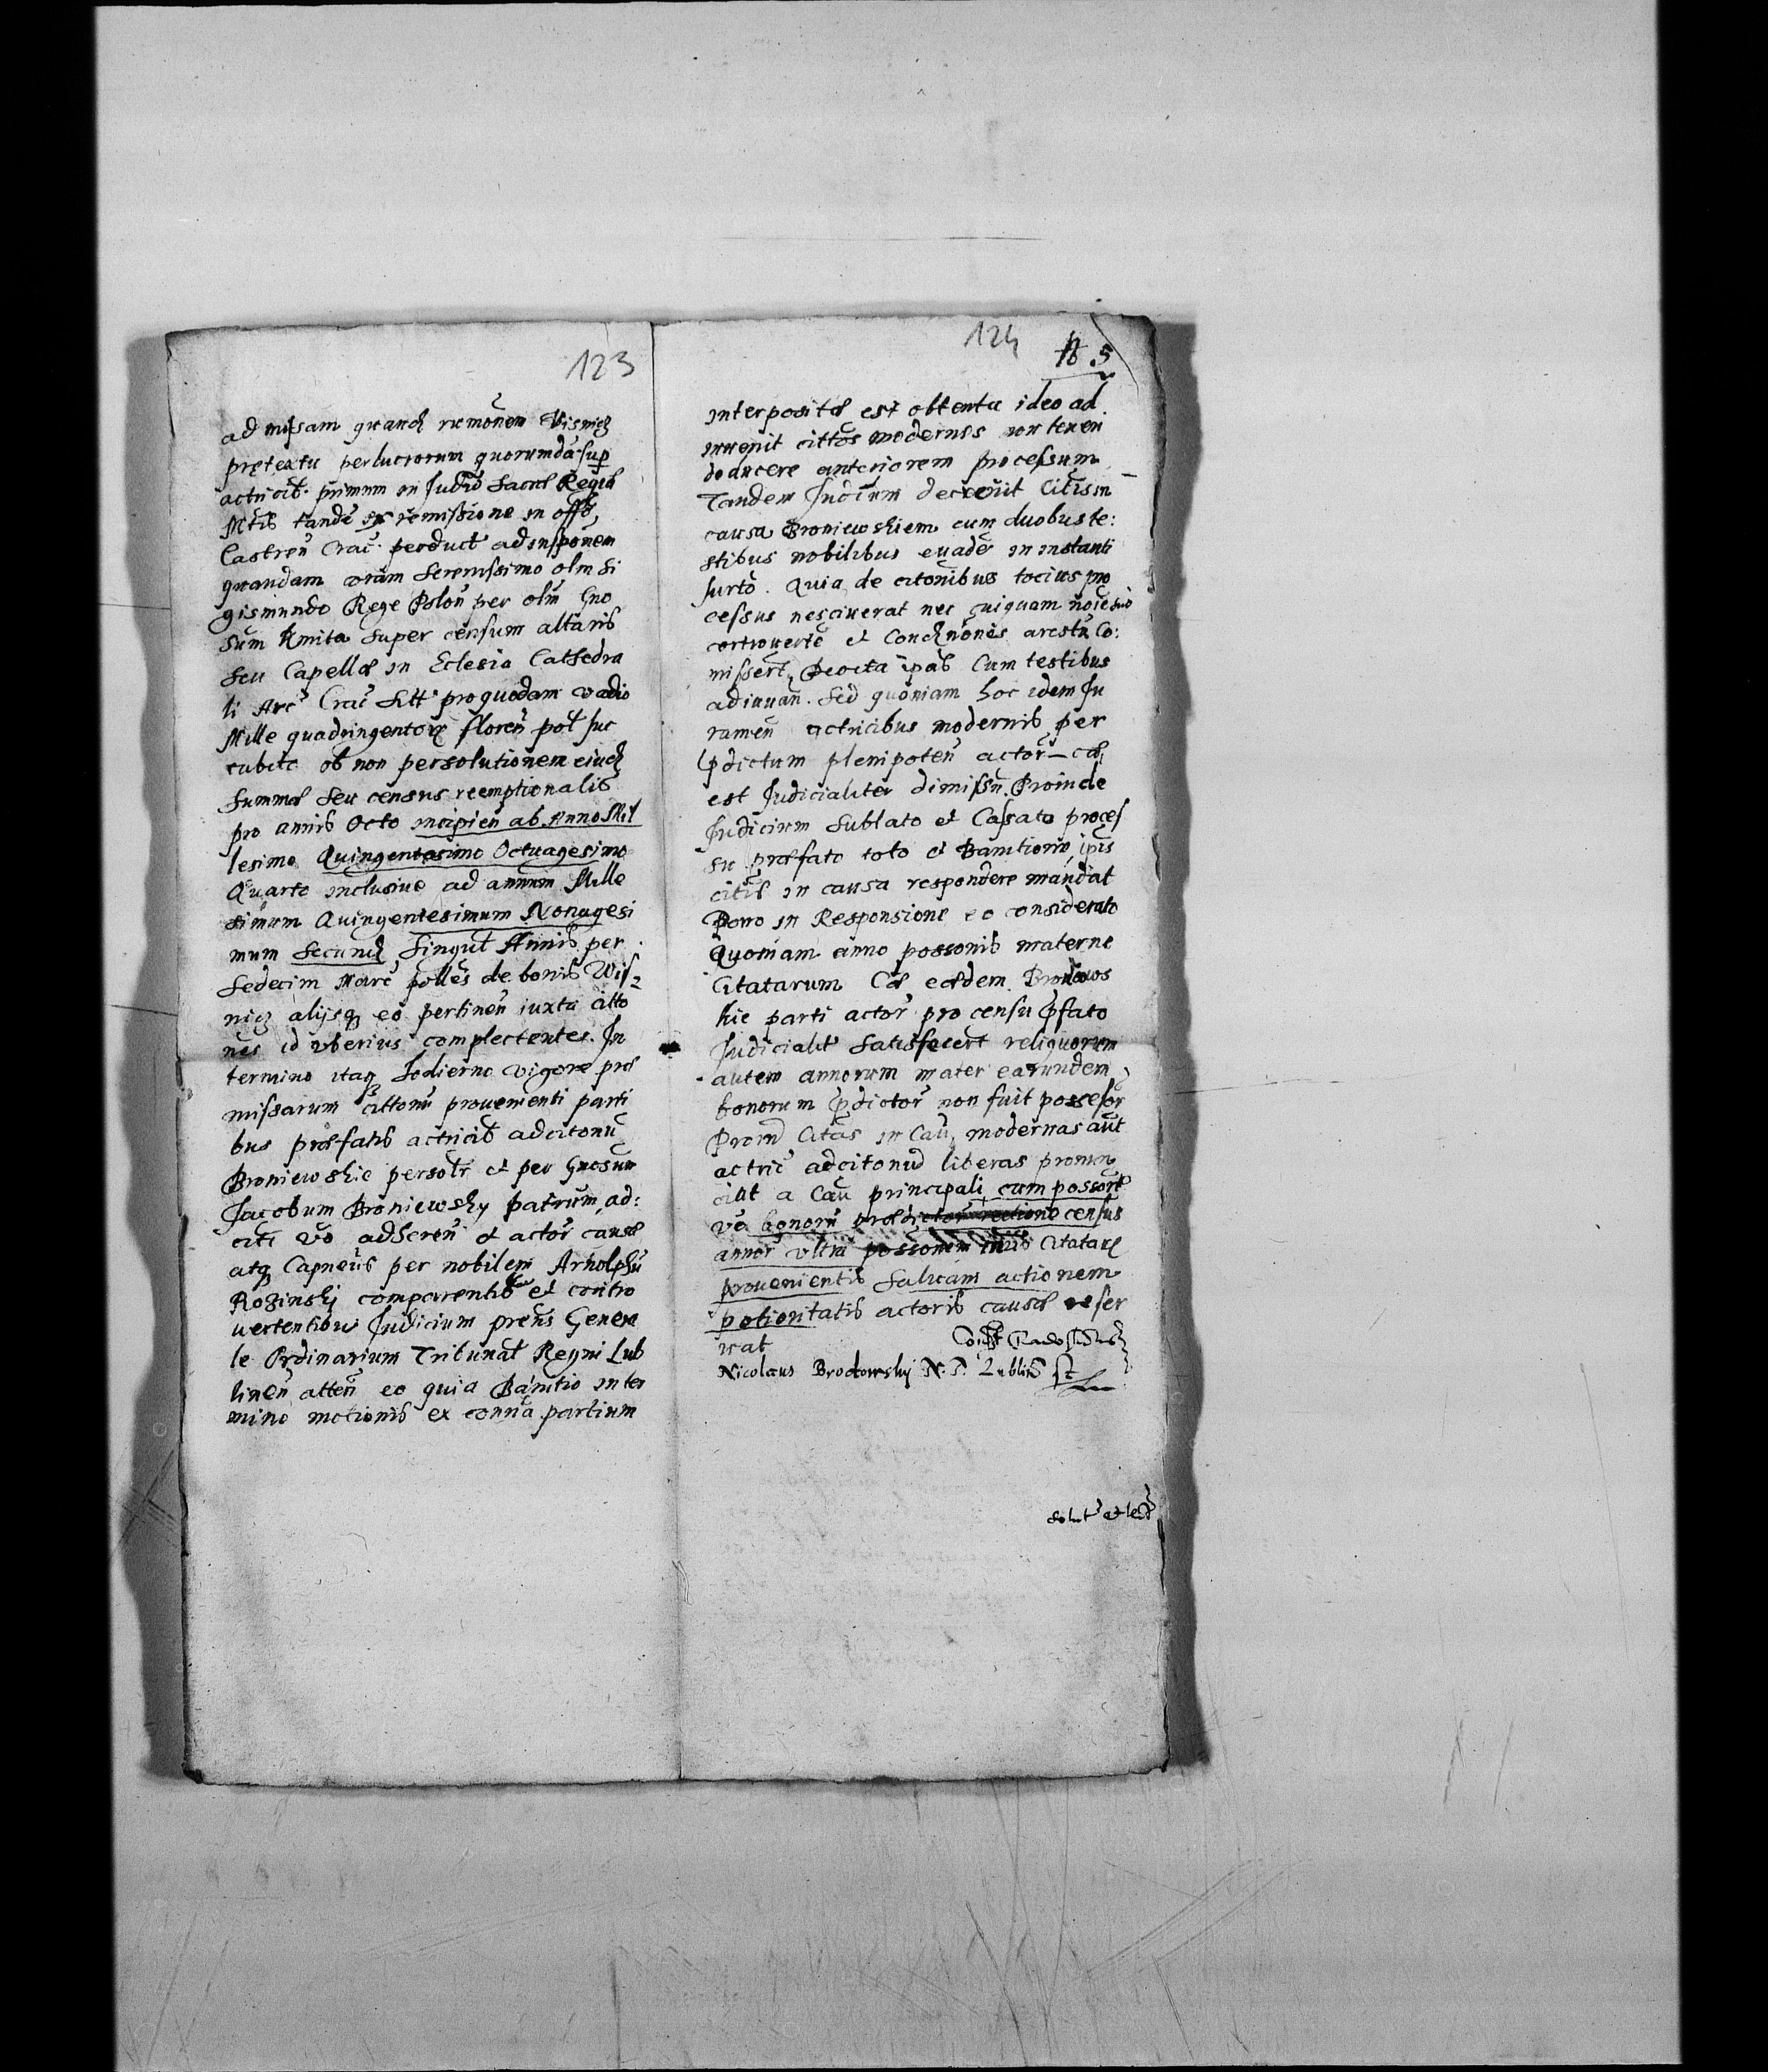 123
ad missam quand rumonem Visnicz
pretextu perlucrorum quorumda sup
actricib. primum in Judio Sacrae Regiae
Mtis tande ex remissione in offo,
Castren Crac. perduct ad insponem
quandam coram Serenissimo olm Si
gismundo Rege Polon per olm Gno
sum Kmita super censum altaris
seu Capellae in Eclesia Cathedra
li Arc Crac sitt pro quodam vadio
Mille quadringentor floren pol suc
cubit ob non persolutionem eiusd
Summae seu census reemptionalis
pro annis Octo incipien ab Anno Mil
lesimo Quingentesimo Octuagesimo
Quarto inclusive ad annum Mille
simum Quingentesimum Nonagesi
mum Secund Singul Annis per
Sedecim Marc polles de bonis Wis
nicz alijsq eo pertinen iuxta citto
nes id vberius complectentes. In
termino itaq hodierno vigore prae
missarum cittonu provenienti parti
bus praefatis actricib adcitonu
Broniewskie personlr et per Gnosum
Jacobum Broniewsky patrum, ad:
citi vo adheren et actor causae
atq Capneus per nobilem Arnolphu
Rozinskj comparentib et contro
vertentibus Judicium prens Genera
le Ordinarium Tribunal Regni Lub
linen atten eo quia Banitio inter
mino motionis ex conna partium
124
N 5
interpositae est obtenta ideo ad
invenit cittos modernos non teneri
deducere anteriorem processum
Tandem Judicium decrevit Citis in
causa Broniewskiem cum duobus te:
stibus nobilibus evade in instanti
Jurto. Quia de citonibus tocius pro
cessus nesciverat nec quiquam noie suo
cortroverte et Condnones arestu Co:
misert, Peracta ipas Cum testibus
adiuvan. Sed quoniam hoc idem Ju
ramen actricibus modernis per
pdictum plenipoten actor cae
est Judicialiter dimissu. Proinde
Judicium Sublato et Cassato proces
su praefato toto et Banitione, ipis
citis in causa respondere mandat
Porro in Responsione eo considerato
Quoniam anno possonis materne
Citatarum Cae eaedem Broniows
kie parti actor pro censu pfato
Judicialit Satisfecert reliquorum
autem annorum mater earundem
bonorum pdictor non fuit possesor
Proind Citas in Cau, modernas aut
actric adcitonid liberas pronun
ciat a Cau principali, cum possore
vo bonoru census
annor vltra possonem Citatar
provenientis Salvam actionem
potioritatis actoris causae reser
vat
Nicolaus Brodowskij N. T. Lublin
solut et lect